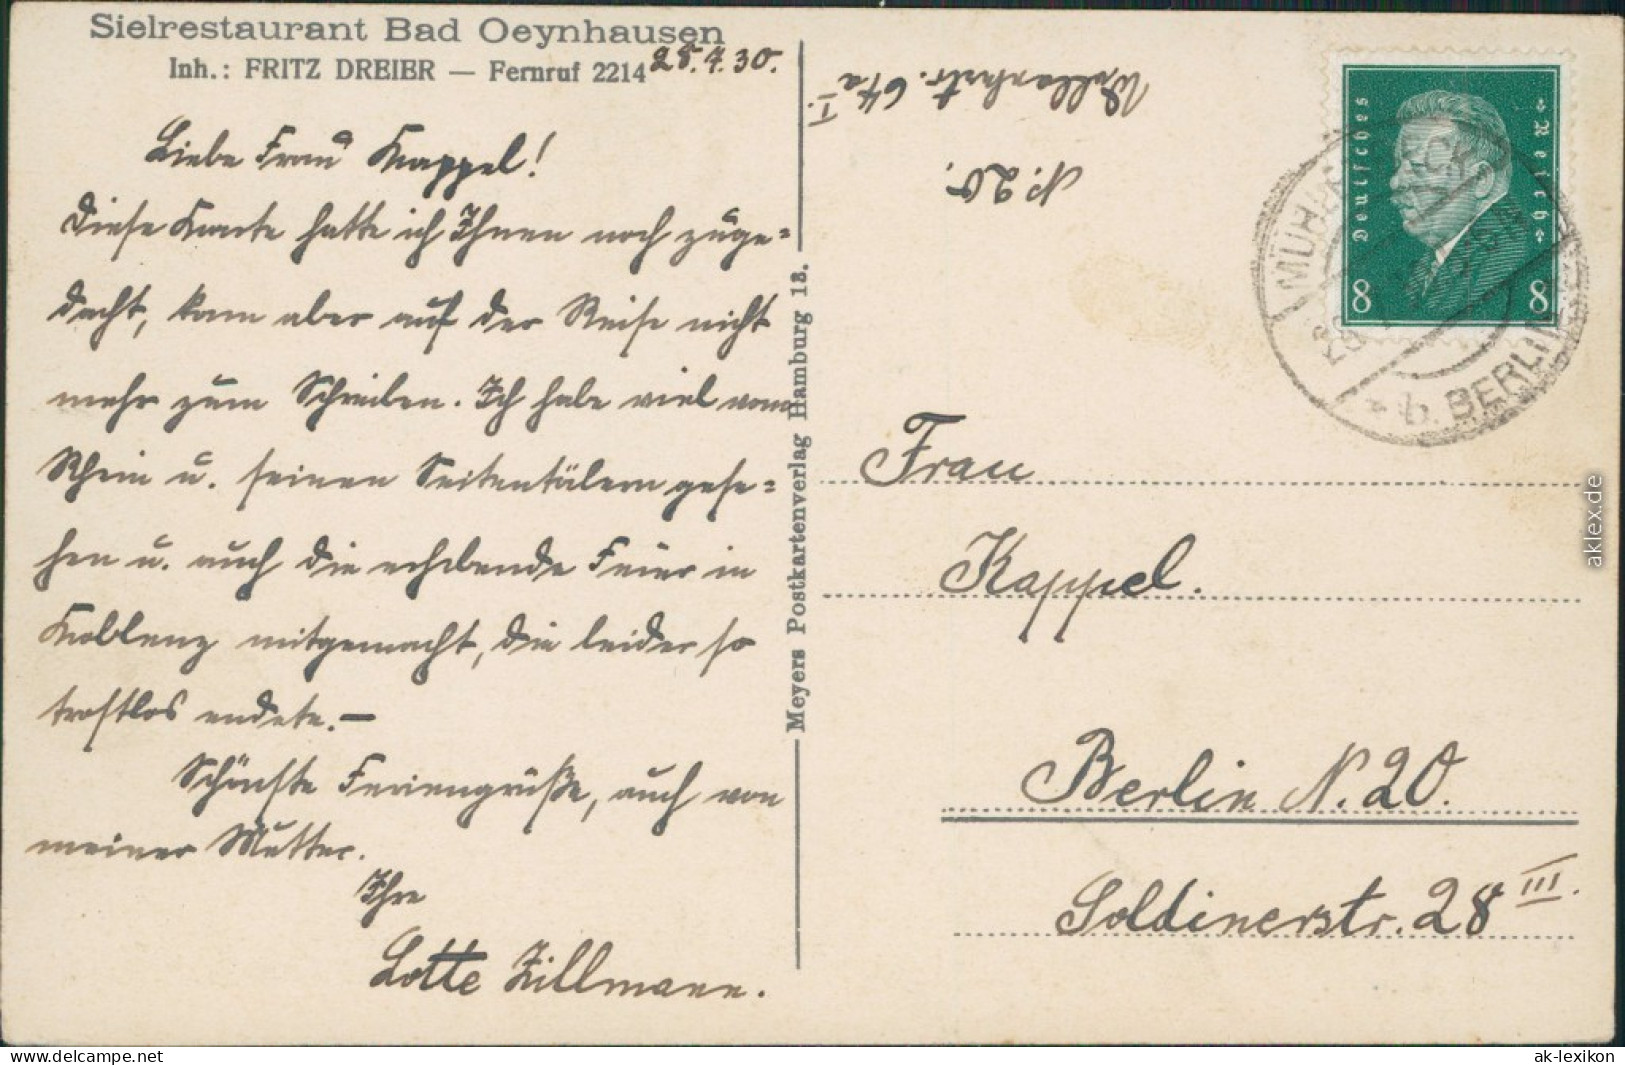 Sielrestaurant Bad Oeynhausen
Inh.: FRITZ DREIER — Fernruf 2214
28.7.30.
Liebe Frau Kappel!
Diese Karte hatte ich Ihnen noch zuge=
dacht, kam aber auf der Reise nicht
mehr zum Schreiben. Ich habe viel vom
Rhein u. seinen Seitentälern gese=
hen u. auch die erhebende Feier in
Koblenz mitgemacht, die leider so
trostlos endete.—
Schönste Feriengrüße, auch von
meiner Mutter.
Ihre
Lotte Zillmann.
Meyers Postkartenverlag Hamburg 13.
Wollankstr. 64a I.
N. 20.
Deutsches Reich
8 8
b. BERLIN
Frau
Kappel.
Berlin N. 20.
Soldinerstr. 28 III.
aklex.de
www.delcampe.net
ak-lexikon